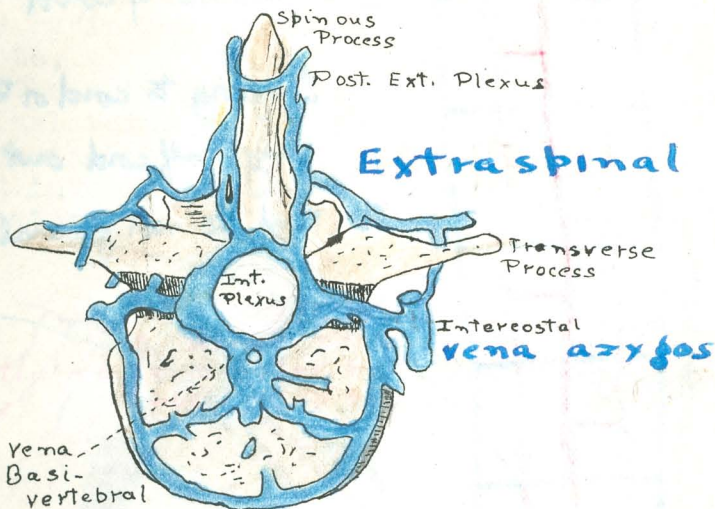 Spinous
Process
Post. Ext. Plexus
Extraspinal
Transverse
Process
Int.
Plexus
Intercostal
vena azygos
vena
Basi-
vertebral